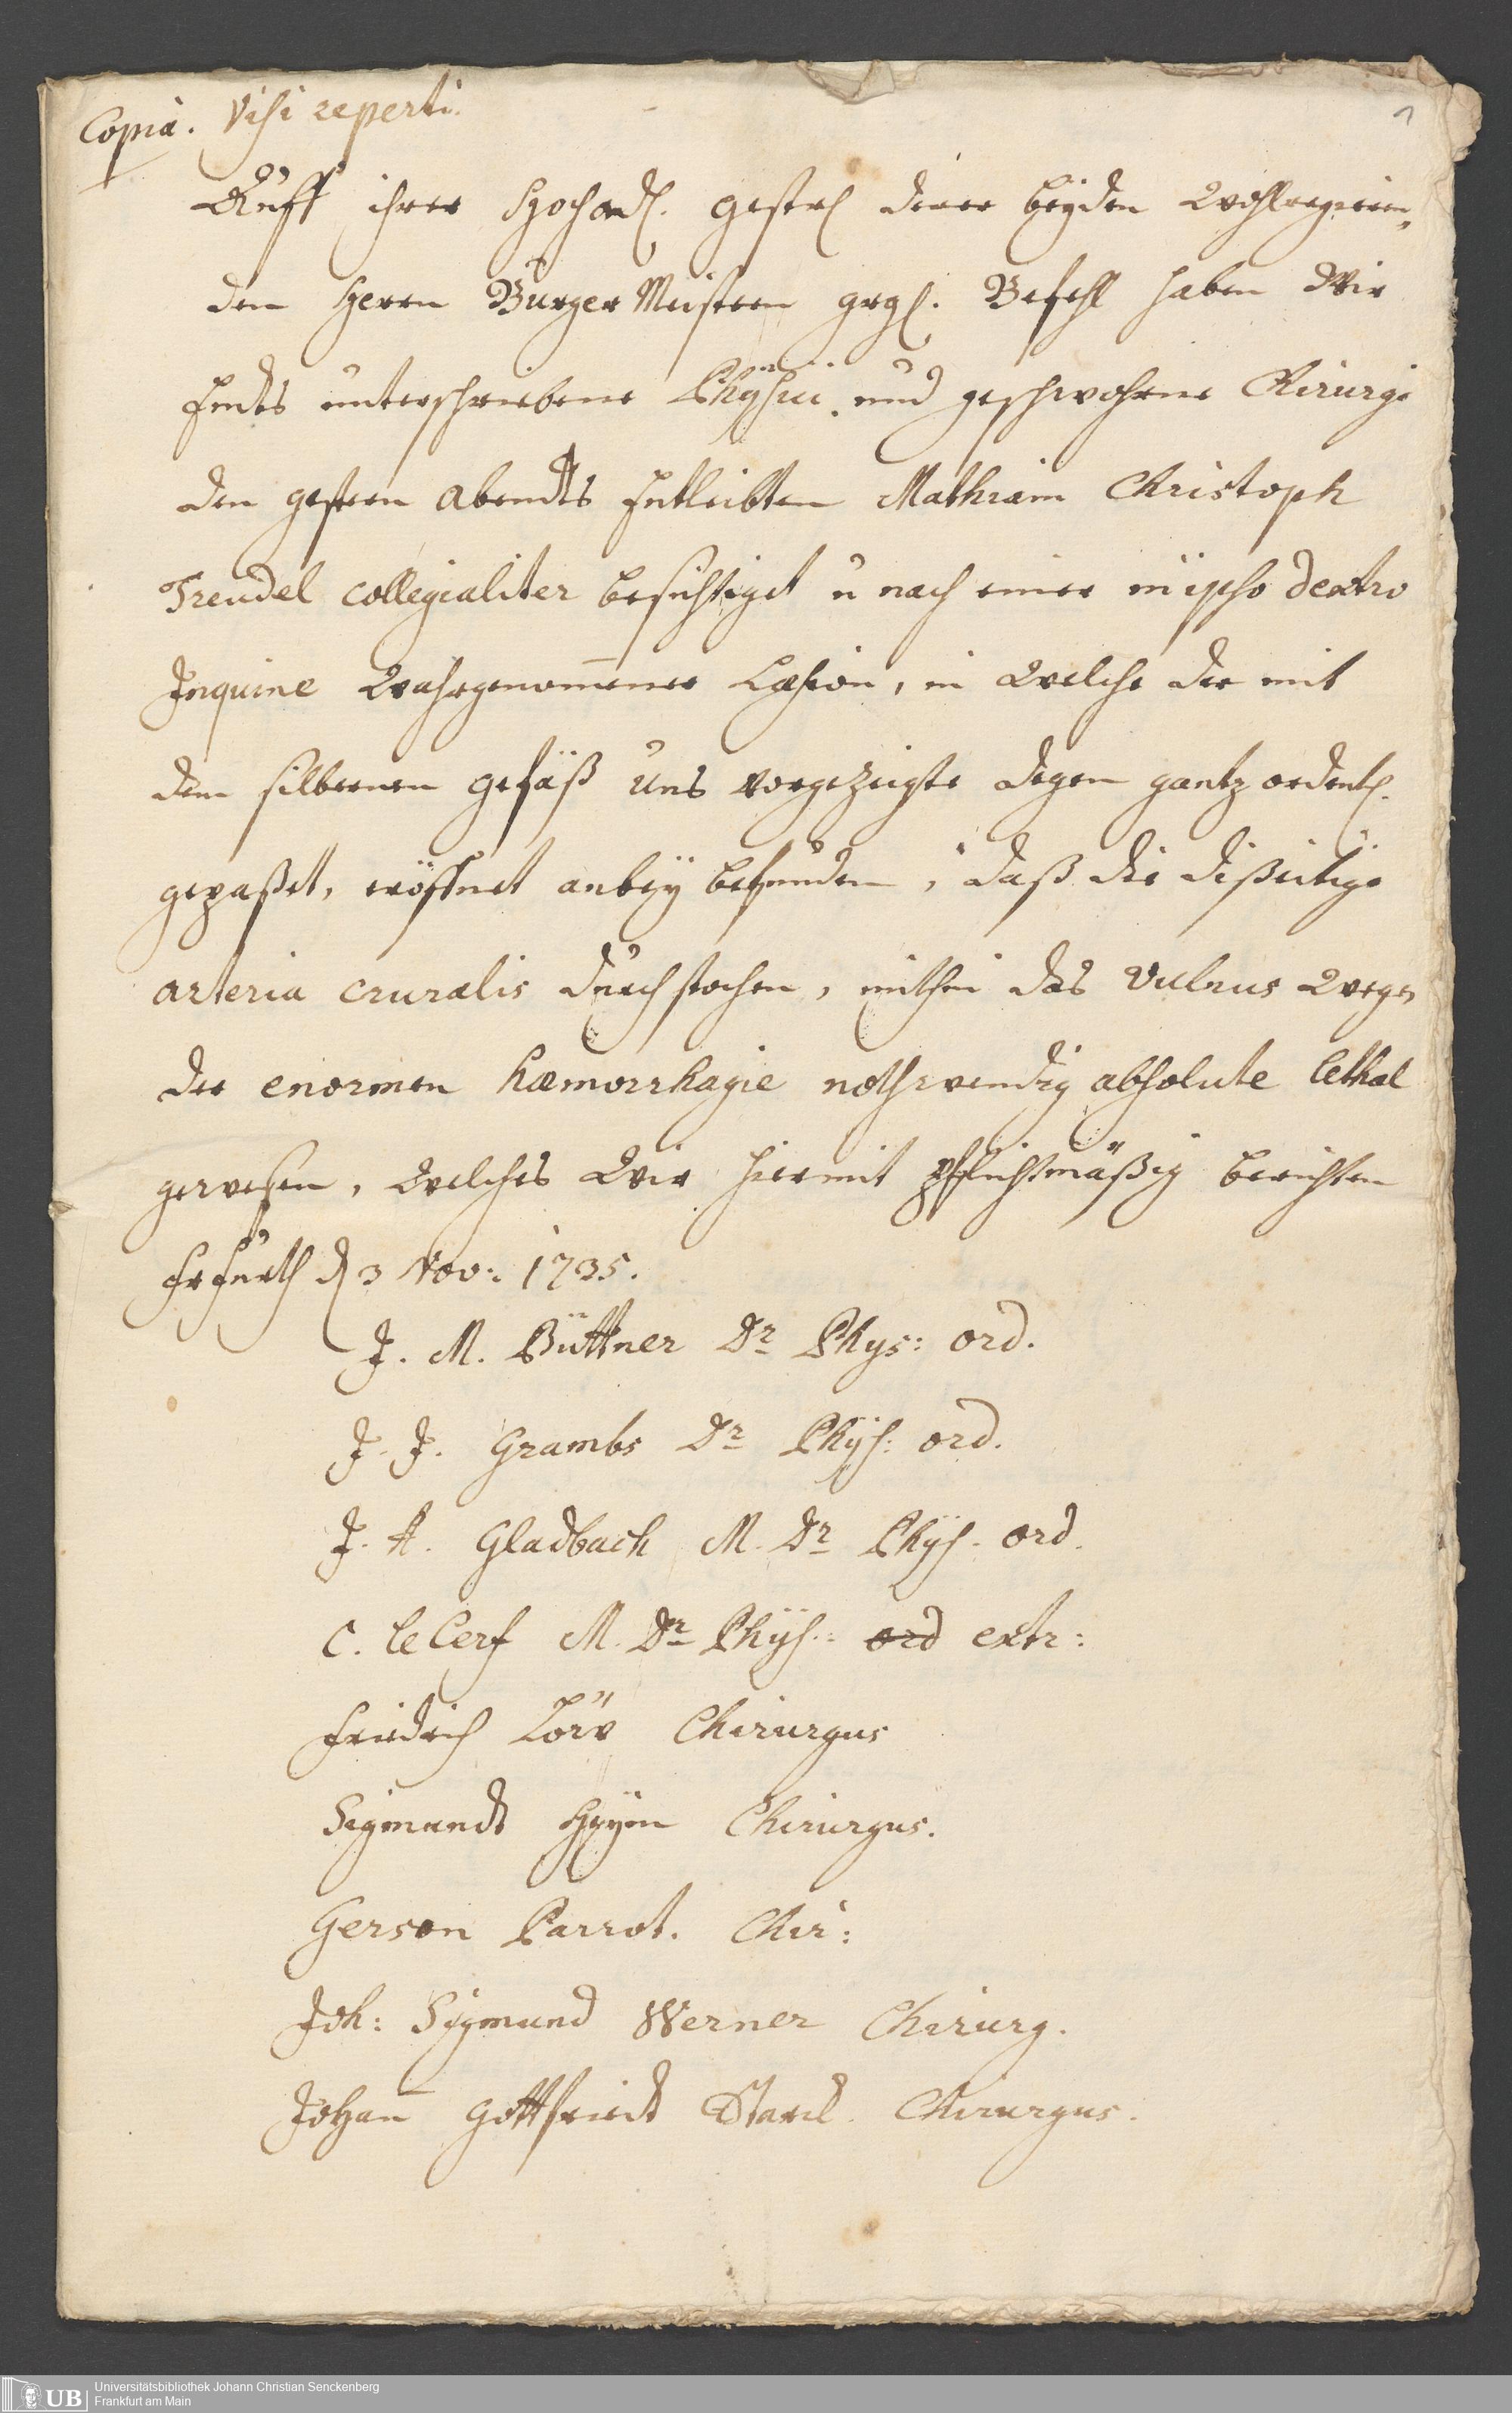 Copia. Visi reperti.
1
Auff ihrer Hochadl. gestrl. derer beyden Wohlregieren„
den Herrn Burger Meistern grgl. Befehl haben Wir
Endts unterschriebene Physici und geschwohrne Chirurgi
den gestern Abendts Entleibten Mathiam Christoph
Treudel collegialiter besichtiget u nach einer in ipso dextro
Inguine Wahrgenom̄ener Læsion, in Welche der mit
dem silbernen gefäß Uns vorgezeigte degen gantz ordentl.
gepaßet, eröffnet anbey befunden, daß die dißeitige
arteria cruralis durchstochen, mithin das Vulnus Wegen
der enormen hæmorrhagie nothwendig absolute lethal
gewesen, Welches Wir hiermit pflichtmäßig berichten
Frfurth d 3 Nov: 1735.
J. M. Büttner Dr Phys: ord.
J. J. Grambs Dr Phys: ord.
J. A. Gladbach M. Dr Phys. ord.
C. le Cerf M. Dr Phys: ord extr:
Friedrich Löw Chirurgus
Sigmundt Heym Chirurgus.
Gerson Parrot. Chir:
Joh: Sigmund Werner Chirurg.
Johan̄ Gottfriedt Chirurgus.
UB
Universitätsbibliothek Johann Christian Senckenberg
Frankfurt am Main